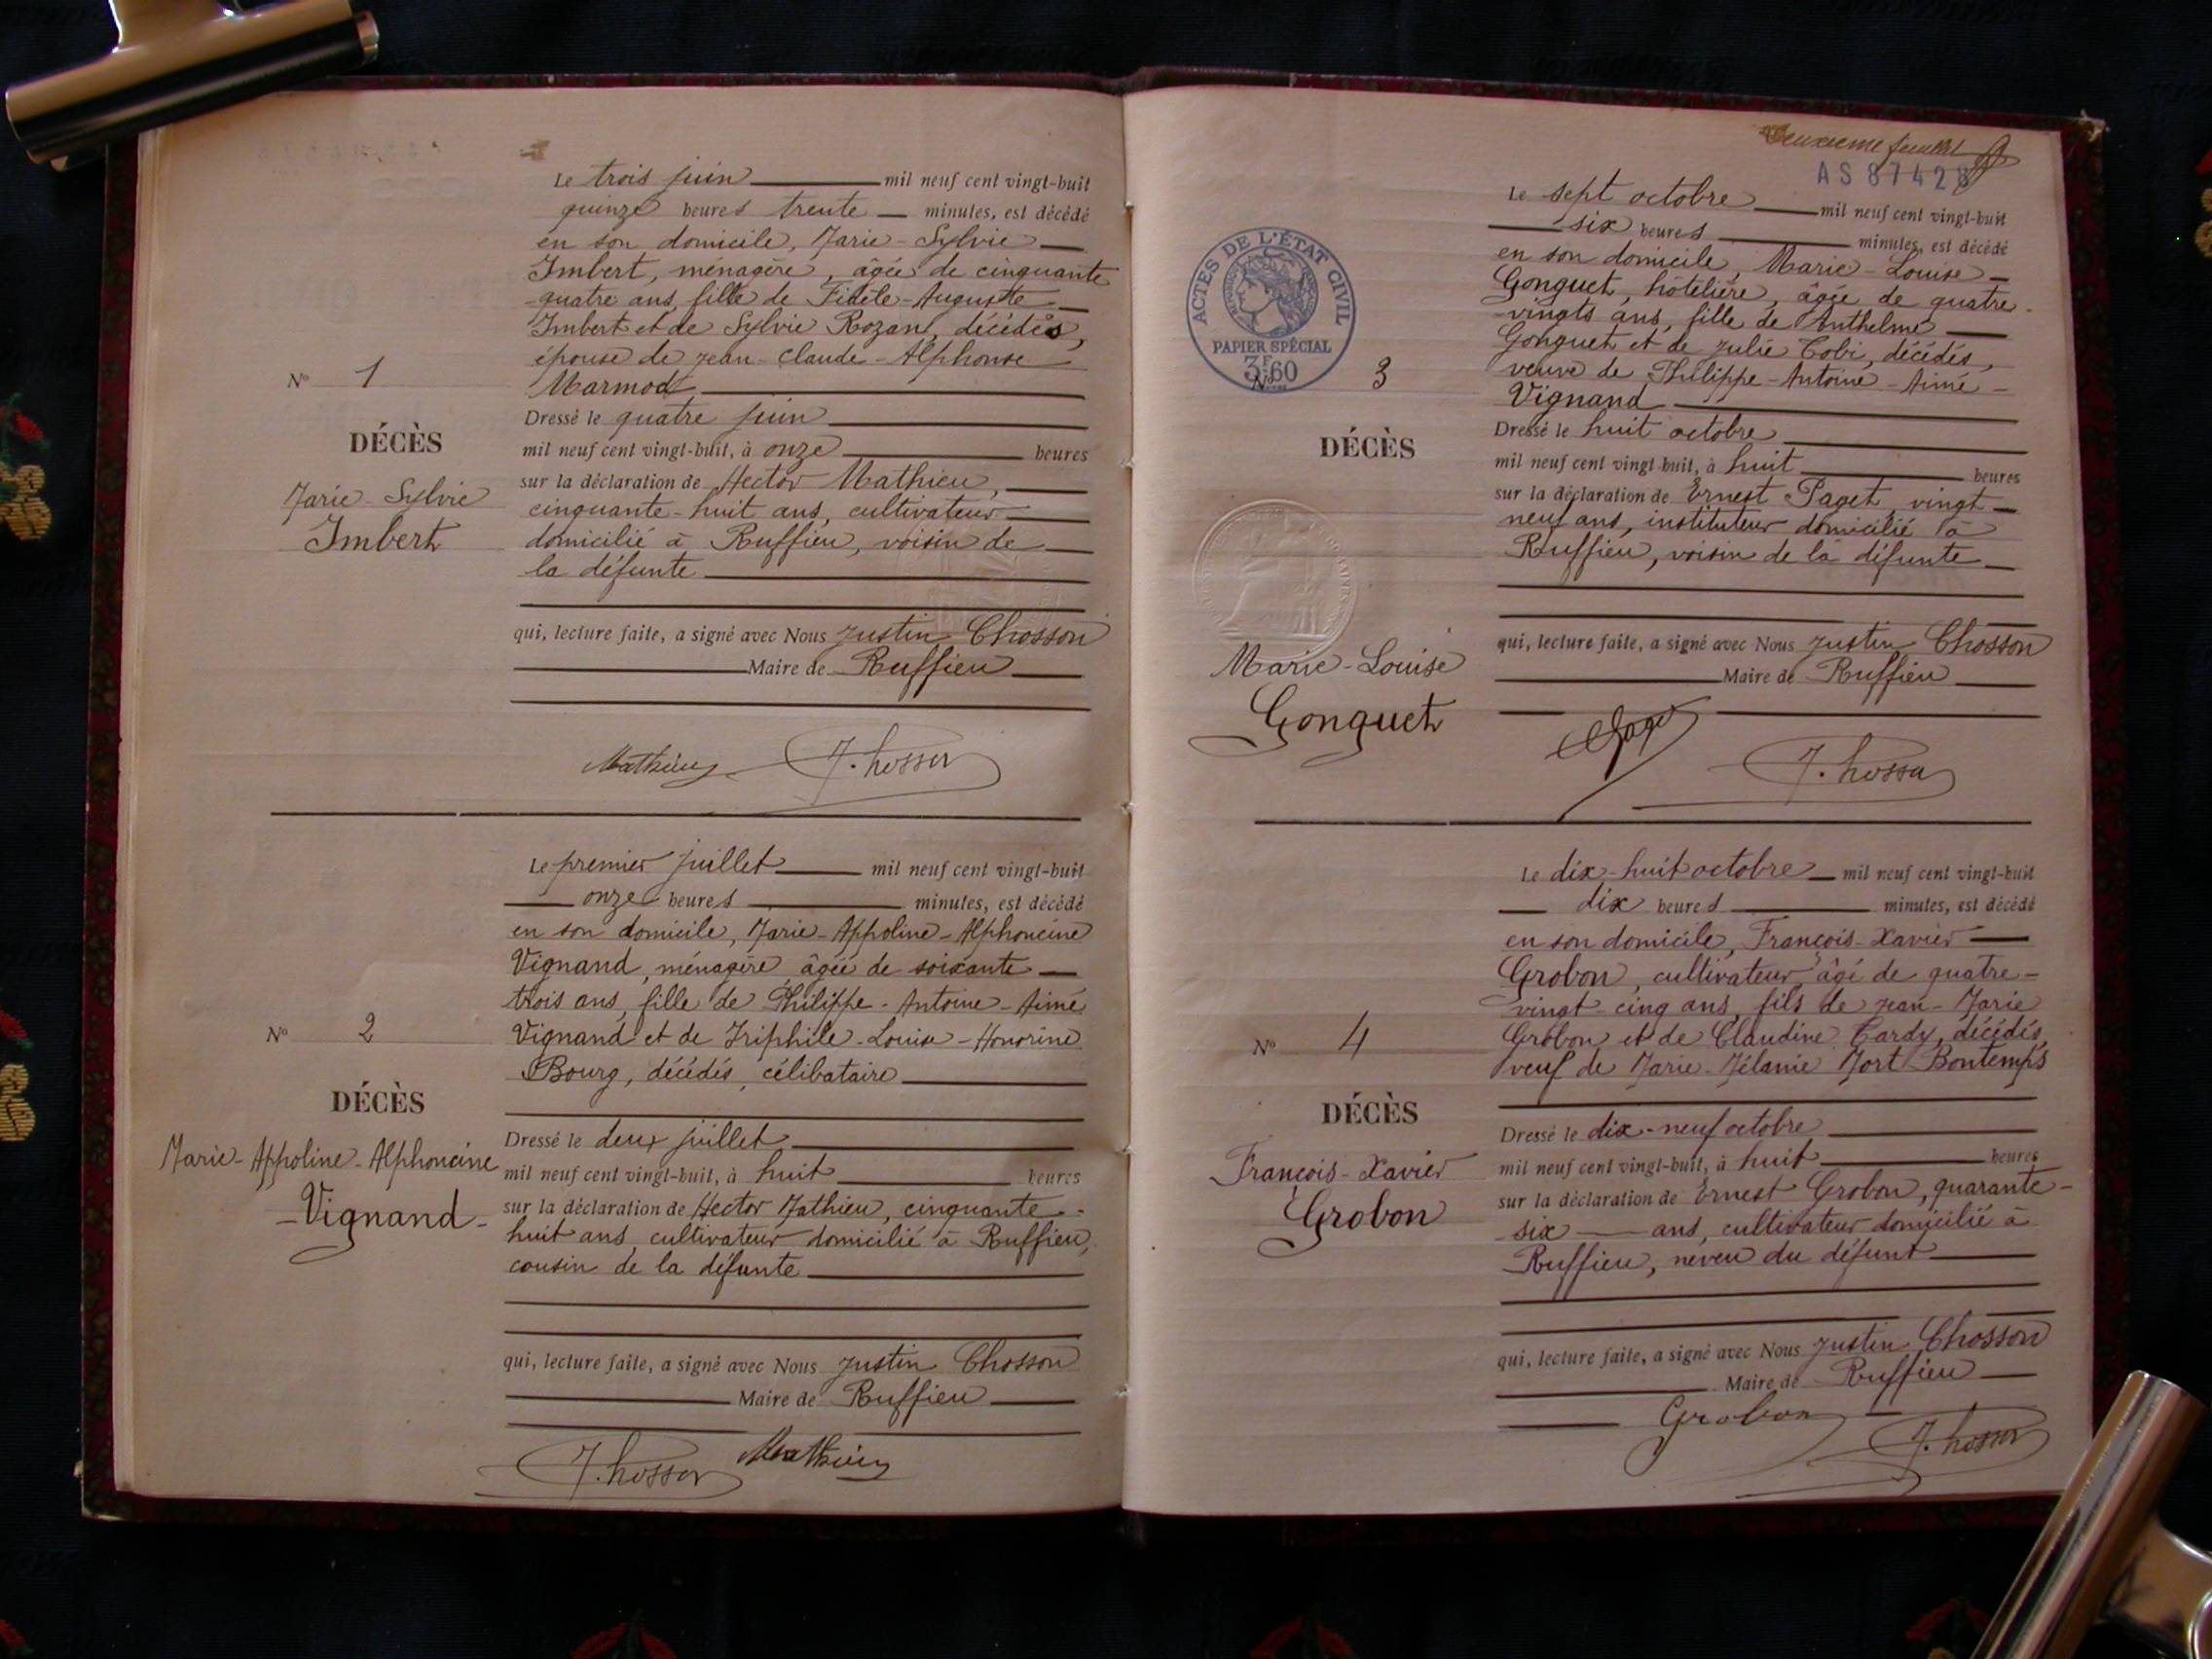 Le trois juin mil neuf cent vingt-huit
quinze heures trente minutes, est décédé
en son domicile, Marie-Sylvie
Imbert, ménagère, âgée de cinquante
-quatre ans, fille de Fidèle-Auguste
Imbert et de Sylvie Rozan, décédés,
épouse de Jean-Claude-Alphonse
Marmod
Dressé le quatre juin
mil neuf cent vingt-huit, à onze heures
sur la déclaration de Hector Mathieu,
cinquante-huit ans, cultivateur
domicilié à Ruffieu, voisin de
la défunte
qui, lecture faite, a signé avec Nous Justin Chosson
Maire de Ruffieu
N° 1
DÉCÈS
Marie-Sylvie
Imbert
Mathieu J. Chosson
Le premier juillet mil neuf cent vingt-huit
onze heures minutes, est décédé
en son domicile, Marie-Appoline-Alphoncine
Vignand, ménagère âgée de soixante
trois ans, fille de Philippe-Antoine-Aimé
Vignand et de Triphile-Louise-Honorine
Bourg, décédés, célibataire
Dressé le deux juillet
mil neuf cent vingt-huit, à huit heures
sur la déclaration de Hector Mathieu, cinquante-
huit ans, cultivateur domicilié à Ruffieu,
cousin de la défunte
qui, lecture faite, a signé avec Nous Justin Chosson
Maire de Ruffieu
N° 2
DÉCÈS
Marie-Appoline-Alphoncine
-Vignand-
J. Chosson Mathieu
Deuxième feuillet
AS 87428
ACTES DE L'ÉTAT CIVIL
PAPIER SPÉCIAL
3F60
Le sept octobre mil neuf cent vingt-huit
six heures minutes, est décédé
en son domicile, Marie-Louise
Gonguet, hôtelière, âgée de quatre-
vingts ans, fille de Anthelme
Gonguet et de Julie Cobi, décédés,
veuve de Philippe-Antoine-Aimé-
Vignand
Dressé le huit octobre
mil neuf cent vingt-huit, à huit heures
sur la déclaration de Ernest Paget, vingt
neuf ans, instituteur domicilié à
Ruffieu, voisin de la défunte
qui, lecture faite, a signé avec Nous Justin Chosson
Maire de Ruffieu
N° 3
DÉCÈS
Marie-Louise
Gonguet
J. Chosson
Le dix-huit octobre mil neuf cent vingt-huit
dix heures minutes, est décédé
en son domicile, François-Xavier
Grobon, cultivateur âgé de quatre-
vingt-cinq ans, fils de Jean-Marie
Grobon et de Claudine Tardy, décédés,
veuf de Marie-Mélanie Mort Bontemps
Dressé le dix-neuf octobre
mil neuf cent vingt-huit, à huit heures
sur la déclaration de Ernest Grobon, quarante-
six ans, cultivateur domicilié à
Ruffieu, neveu du défunt
qui, lecture faite, a signé avec Nous Justin Chosson
Maire de Ruffieu
N° 4
DÉCÈS
François-Xavier
Grobon
Grobon J. Chosson